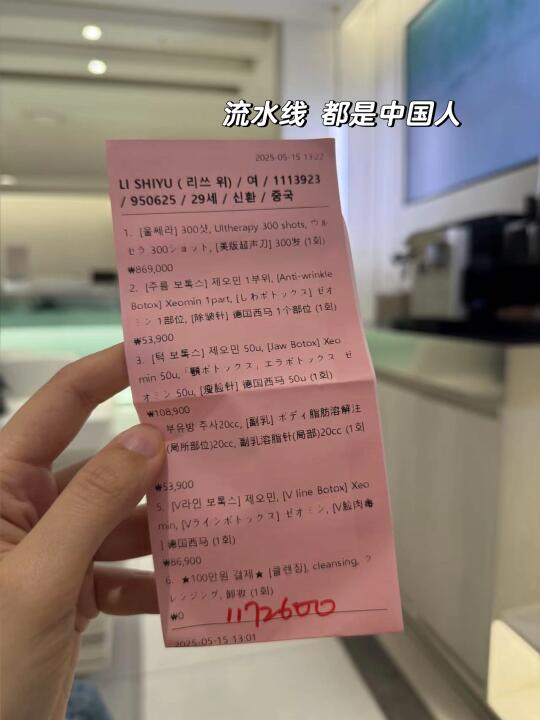 流水线 都是中国人
2025-05-15 13:22
LI SHIYU ( 리쓰 위) / 여 / 1113923
/ 950625 / 29세 / 신환 / 중국
1. [울쎄라] 300샷, Ultherapy 300 shots, ウル
セラ 300ショット, [美版超声刀] 300发 (1회)
₩869,000
2. [주름 보톡스] 제오민 1부위, [Anti-wrinkle
Botox] Xeomin 1part, [しわボトックス] ゼオ
ミン 1部位, [除皱针] 德国西马 1个部位 (1회)
₩53,900
3. [턱 보톡스] 제오민 50u, [Jaw Botox] Xeo
min 50u, 「顎ボトックス」エラボトックス ゼ
オミン 50u, [瘦脸针] 德国西马 50u (1회)
₩108,900
부유방 주사20cc, [副乳] ボディ脂肪溶解注
(局所部位)20cc, 副乳溶脂针(局部)20cc (1회
₩53,900
5. [V라인 보톡스] 제오민, [V line Botox] Xeo
min, [Vラインボトックス] ゼオミン, [V脸肉毒
] 德国西马 (1회)
₩86,900
6. ★100만원 결제★ [클렌징], cleansing, ク
レンジング, 卸妆 (1회)
₩0
1172600
2025-05-15 13:01